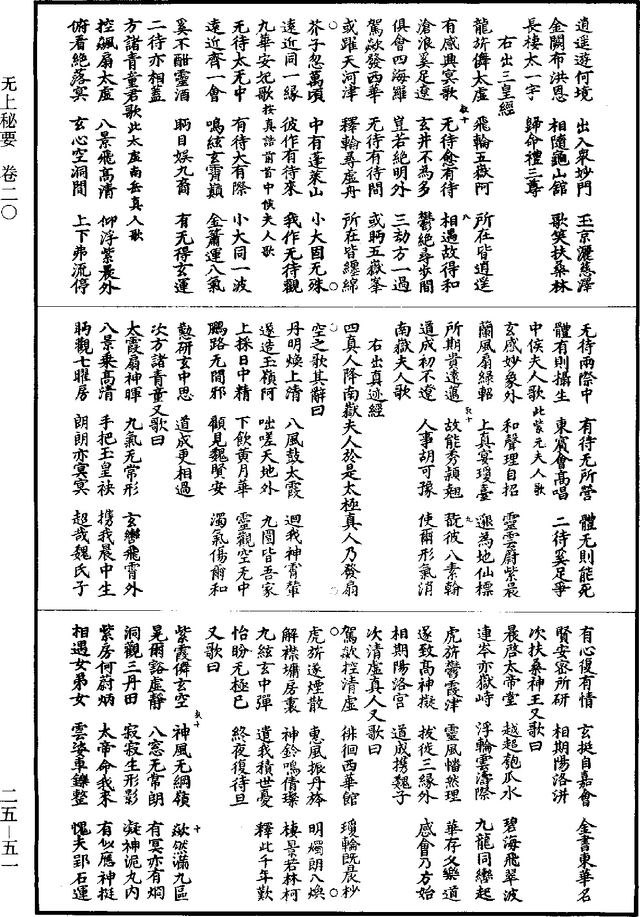 逍遥遊何境　出入眾妙門　玉京灑慈澤
金闕布洪恩　相隨龜山館　歌笑扶桑林
長棲太一字　歸命禮三尊
右出三皇經
龍旂儛太虛　飛輪五嶽阿　所在皆逍遥
有感興冥歌　无待愈有待　相遇故得和
滄浪奚足遼　玄井不為多　鬱絕尋步間
俱會四海羅　豈若絕明外　三劫方一過
駕欻發西華　无待有待間　或眄五嶽峯
或躍天河津　釋輪尋虛舟　所在皆纏綿
芥子忽萬頃　中有蓬萊山　小大固无殊
遠近同一緣　彼作有待來　我作无待觀
九華安妃歌按真誥首首中侯夫人歌
无待太无中　有待太有際　小大同一波
遠近齊一會　鳴絃玄霄顛　金簫運八氣
奚不酣靈酒　眄目娛九裔　有无得玄運
二待亦相蓋
方諸青童君歌此太虛南岳真人歌
控飆扇太虛　八景飛高清　仰浮紫晨外
俯看絕落冥　玄心空洞間　上下弗流停
无待兩際中　有待无所營　體无則能死
體有則攝生　東賓會高唱　二待奚足爭
中侯夫人歌此紫元夫人歌
玄感妙象外　和聲理自招　靈雲鬱紫晨
蘭風扇綠軺　上真宴瓊臺　邈為地仙標
所期貴遠邁　故能秀穎翹　翫彼八素翰
道成初不遼　人事胡可豫　使爾形氣消
南嶽夫人歌
右出真迹經
四真人降南嶽夫人於是太極真人乃發扇
空之歌其辭曰
丹明煥上清　八風鼓太霞　迴我神霄輦
遂造玉嶺阿　咄嗟天地外　九圍皆吾家
上採日中精　下飲黃月華　靈觀空无中
鵬路无間邪　顧見魏賢安　濁氣傷爾和
勤研玄中思　道成更相過
次方諸青童又歌曰
太霞扇神暉　九氣无常形　玄轡飛霄外
八景乘高清　手把玉皇袂　攜我晨中生
眄觀七曜房　朗朗亦冥冥　超哉魏氏子
有心復有情　玄挺自嘉會　金書東華名
賢安密所研　相期陽洛汧
次扶桑神王又歌曰
晨啓太帝堂　越超匏瓜水　碧海飛翠波
連岑亦嶽峙　浮輪雲濤際　九龍同轡起
虎旂鬱霞津　靈風幡然理　華存久樂道
遂致高神擬　拔徙三緣外　感會乃方始
相期陽洛宮　道成攜魏子
次清虛真人又歌曰
駕欻控清虛　徘徊西華館　瓊輪既晨杪
虎旂逐煙散　惠風振丹旍　明燭朗八煥
解襟墉房裏　神鈴鳴倩璨　棲景若林柯
九絃玄中彈　遺我積世憂　釋此千年歎
怡盼无極已　終夜復待旦
又歌曰
紫霞儛玄空　神風无綱領　欻然滿九區
晃爾豁虛靜　八窓无常朗　有冥亦有炯
洞觀三丹田　寂寂生形影　凝神泥丸內
紫房何蔚炳　太帝命我來　有似應神挺
相遇女弟女　雲姿車鑠整　愧夫郢石運
无上秘要　卷二〇
二五—五一